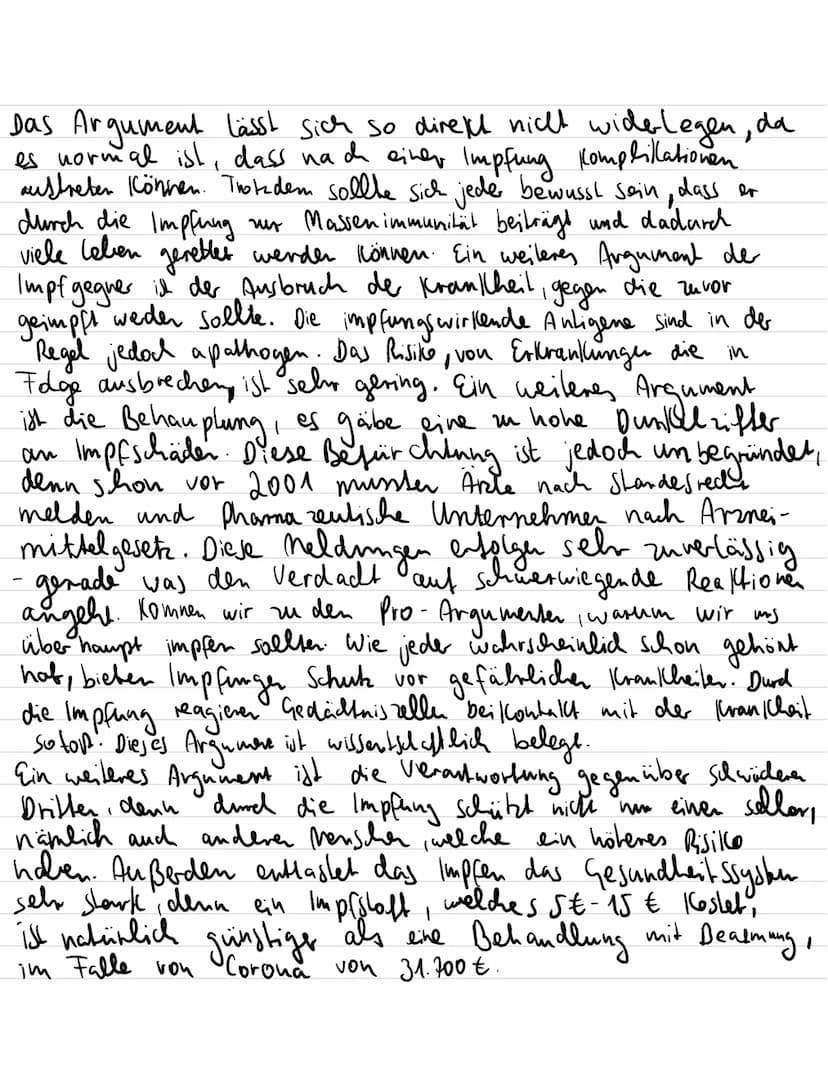 Das Argument lässt sich so direkt nicht widerlegen, da
es normal ist, dass nach einer Impfung Komplikationen
auftreten können. Trotzdem sollte sich jeder bewusst sein, dass er
durch die Impfung zur Massenimmunität beiträgt und dadurch
viele Leben gerettet werden können. Ein weiteres Argument der
Impfgegner ist der Ausbruch der Krankheit, gegen die zuvor
geimpft weden sollte. Die impfungswirkende Antigene sind in der
Regel jedoch apathogen. Das Risiko, von Erkrankungen die in
Folge ausbrechen, ist sehr gering. Ein weiteres Argument
ist die Behauptung, es gäbe eine zu hohe Dunkelziffer
an Impfschäden. Diese Befürchtung ist jedoch unbegründet,
denn schon vor 2001 mussten Ärzte nach Standesrecht
melden und Pharmazeutische Unternehmen nach Arznei-
mittelgesetz. Diese Meldungen erfolgen sehr zuverlässig
- gerade was den Verdacht auf schwerwiegende Reaktionen
angeht. Kommen wir zu den Pro-Argumenten, warum wir uns
überhaupt impfen sollten. Wie jeder wahrscheinlich schon gehört
hat, bieten Impfungen Schutz vor gefährlichen Krankheiten. Durch
die Impfung reagieren Gedächtniszellen bei Kontakt mit der Krankheit
sofort. Dieses Argument ist wissentschaftlich belegt.
Ein weiteres Argument ist die Verantwortung gegenüber schwächeren
Dritten, denn durch die Impfung schützt nicht nur einen selber,
nämlich auch anderen Menschen, welche ein höheres Risiko
haben. Außerden entlastet das Impfen das Gesundheitssystem
sehr stark, denn ein Impfstoff, welches 5€-15 € kostet,
ist natürlich günstiger als eine Behandlung mit Beatmung,
im Falle von Corona von 31.700 €.